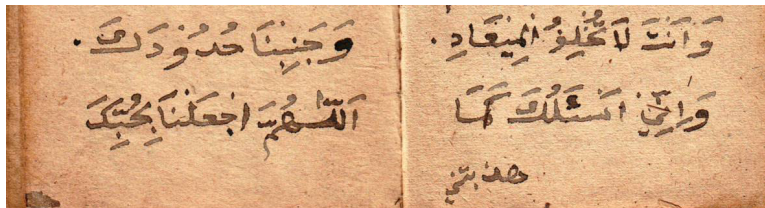 وَاَنْتَ لَا تُخْلِفُ الْمِيعَادِ .
وَاِنِّي اَسْئَلُكَ كَمَا
هديتني
وَجَنِبْنَا حُدُوْدَكَ .
اَللّٰهُمَّ اجْعَلْنَا بِحُبِّكَ